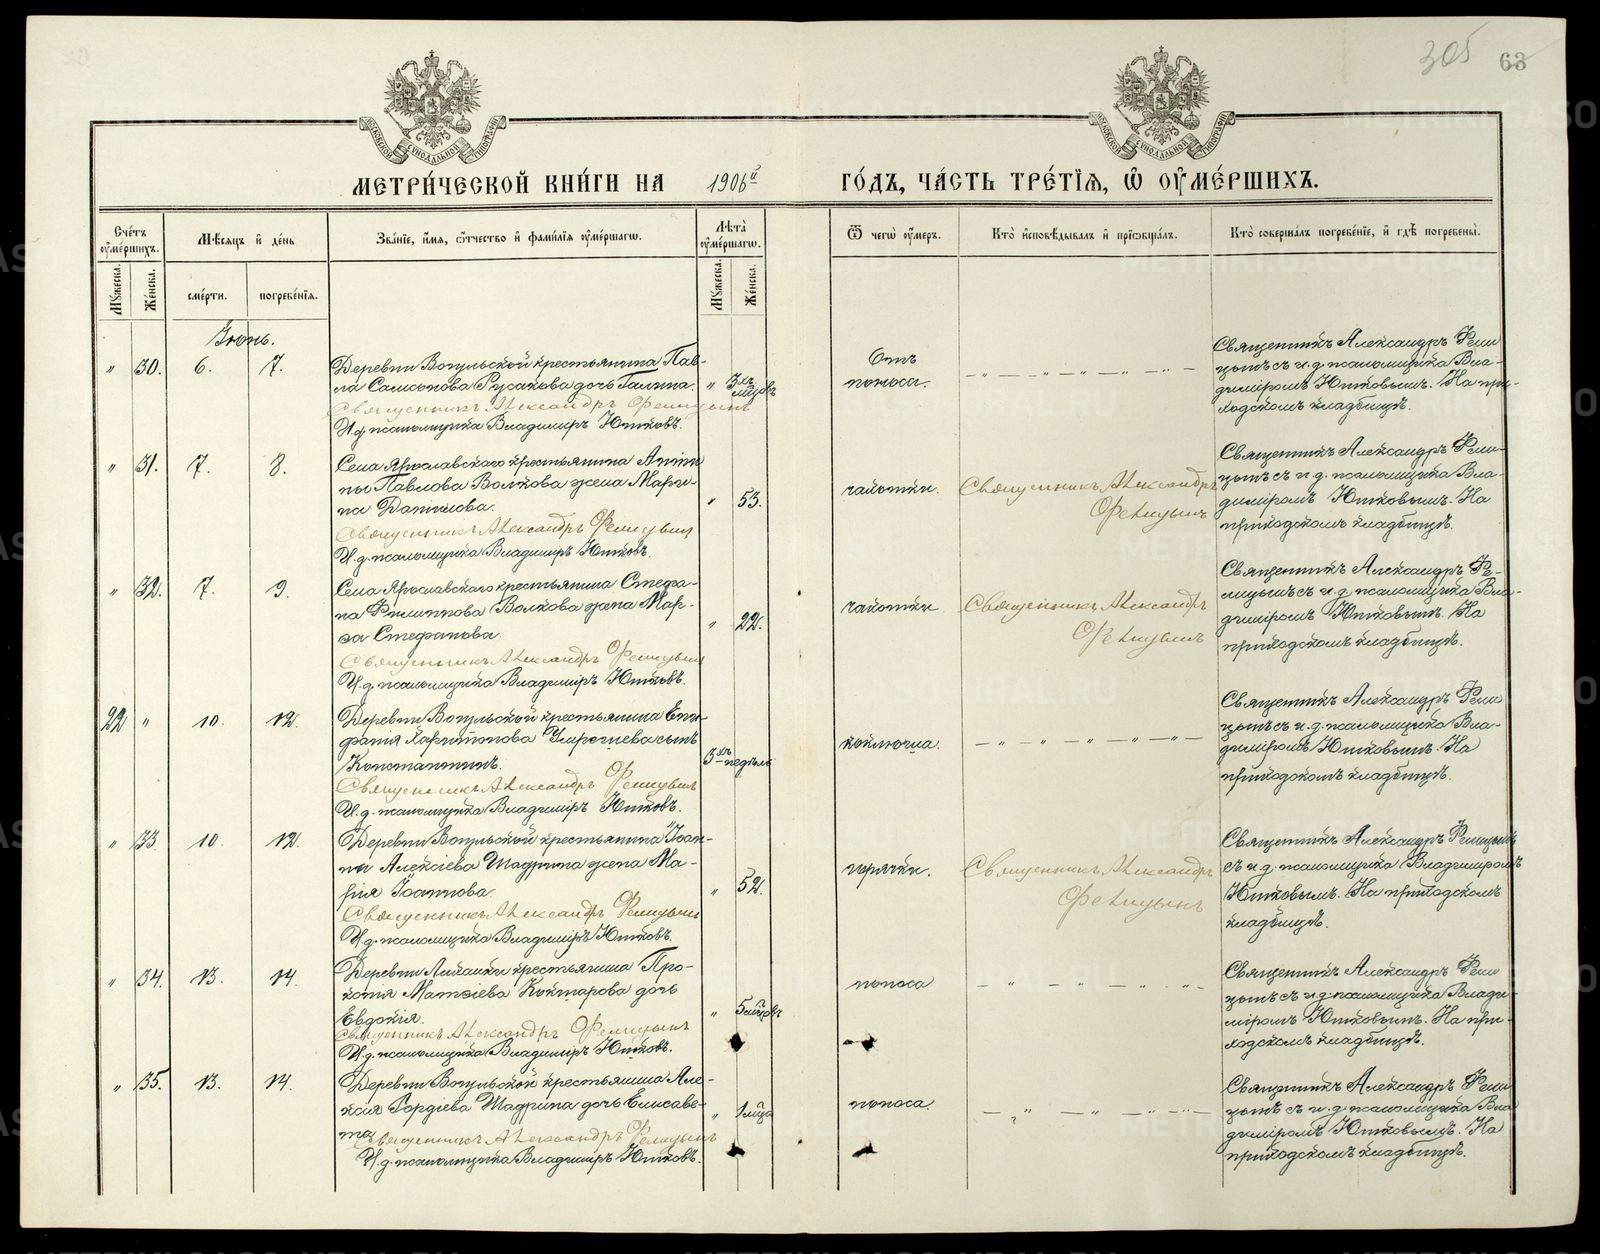 305 63
МОСКОВСКОЙ СѴНОДАЛЬНОЙ ТИПОГРАФІИ
МОСКОВСКОЙ СѴНОДАЛЬНОЙ ТИПОГРАФІИ
МЕТРИ́ЧЕСКОЙ КНИ́ГИ НА 1906й ГО́ДЪ, ЧА́СТЬ ТРЕ́ТІѦ, Ѡ ОУМЕ́РШИХЪ.
Сче́тъ оумершихъ.
Мѣсяцъ и де́нь
Зва́ніе, и́мя, о́тчество и фамилія оуме́ршагѡ.
Лѣта̀ оуме́ршагѡ.
Ѿ чегѡ̀ оу́меръ.
Кто̀ исповѣ́дывалъ и пріѡбща́лъ.
Кто̀ соверша́лъ погребе́ніе, и гдѣ̀ погребены̀.
Мꙋ́жеска.
Же́нска.
сме́рти.
погребе́нія.
Мꙋ́жеска.
Же́нска.
Іюнь.
" 30. 6. 7.
Деревни Вогульской крестьянина Пав-
ла Самсонова Русакова дочь Галина.
Священникъ Александръ Фелицынъ
И.д. псаломщика Владимиръ Ютковъ.
" 3хъ мцовъ
Отъ
поноса.
Священникъ Александръ Фели
цынъ съ и.д. псаломщика Вла-
димиромъ Ютковымъ. На при-
ходскомъ кладбищѣ.
" 31. 7. 8.
Села Ярославскаго крестьянина
Павлова Волкова жена Мари-
на Данилова.
Священникъ Александръ Фелицынъ
И.д. псаломщика Владимиръ Ютковъ.
" 53.
чахотки.
Священникъ Александръ
Фелицынъ
Священникъ Александръ Фели-
цынъ съ и.д. псаломщика Вла-
димиромъ Ютковымъ. На
приходскомъ кладбищѣ.
" 32. 7. 9.
Села Ярославскаго крестьянина Стефа-
на Филиппова Волкова жена Мар-
Стефанова
Священникъ Александръ Фелицынъ
И.д. псаломщика Владимиръ Ютковъ.
" 22.
чахотки
Священникъ Александръ
Фелицынъ
Священникъ Александръ Фе-
лицынъ съ и.д. псаломщика Вла-
димиромъ Ютковымъ. На
приходскомъ кладбищѣ.
22 " 10. 12.
Деревни Вогульской крестьянина Епи-
фанія Харитонова сынъ
Константинъ.
Священникъ Александръ Фелицынъ
И.д. псаломщика Владимиръ Ютковъ.
3хъ недѣль
коклюша.
Священникъ Александръ Фели
цынъ съ и.д. псаломщика Вла-
димиромъ Ютковымъ. На
приходскомъ кладбищѣ.
" 33 10. 12.
Деревни Вогульской крестьянина Іоан-
на Алексіева Шадрина жена Ма-
рія Іоаннова.
Священникъ Александръ Фелицынъ
И.д. псаломщика Владимиръ Ютковъ.
" 52.
горячки.
Священникъ Александръ
Фелицынъ
Священникъ Александръ Фелицынъ
съ и.д. псаломщика Владимиромъ
Ютковымъ. На приходскомъ
кладбищѣ.
" 34. 13. 14.
Деревни крестьянина Про-
копія Матѳіева дочь
Евдокія.
Священникъ Александръ Фелицынъ
И.д. псаломщика Владимиръ Ютковъ.
" 5 мцовъ
поноса
Священникъ Александръ Фели
цынъ съ и.д. псаломщика Влади-
міромъ Ютковымъ. На при-
ходскомъ кладбищѣ.
" 35. 13. 14.
Деревни Вогульской крестьянина Але-
ксія Гордіева Шадрина дочь Елисаве-
та
Священникъ Александръ Фелицынъ
И.д. псаломщика Владимиръ Ютковъ.
" 1 мца
поноса.
Священникъ Александръ Фели
цынъ съ и.д. псаломщика Вла
димиромъ Ютковымъ. На
приходскомъ кладбищѣ.
METRIKI.GASO-URAL.RU